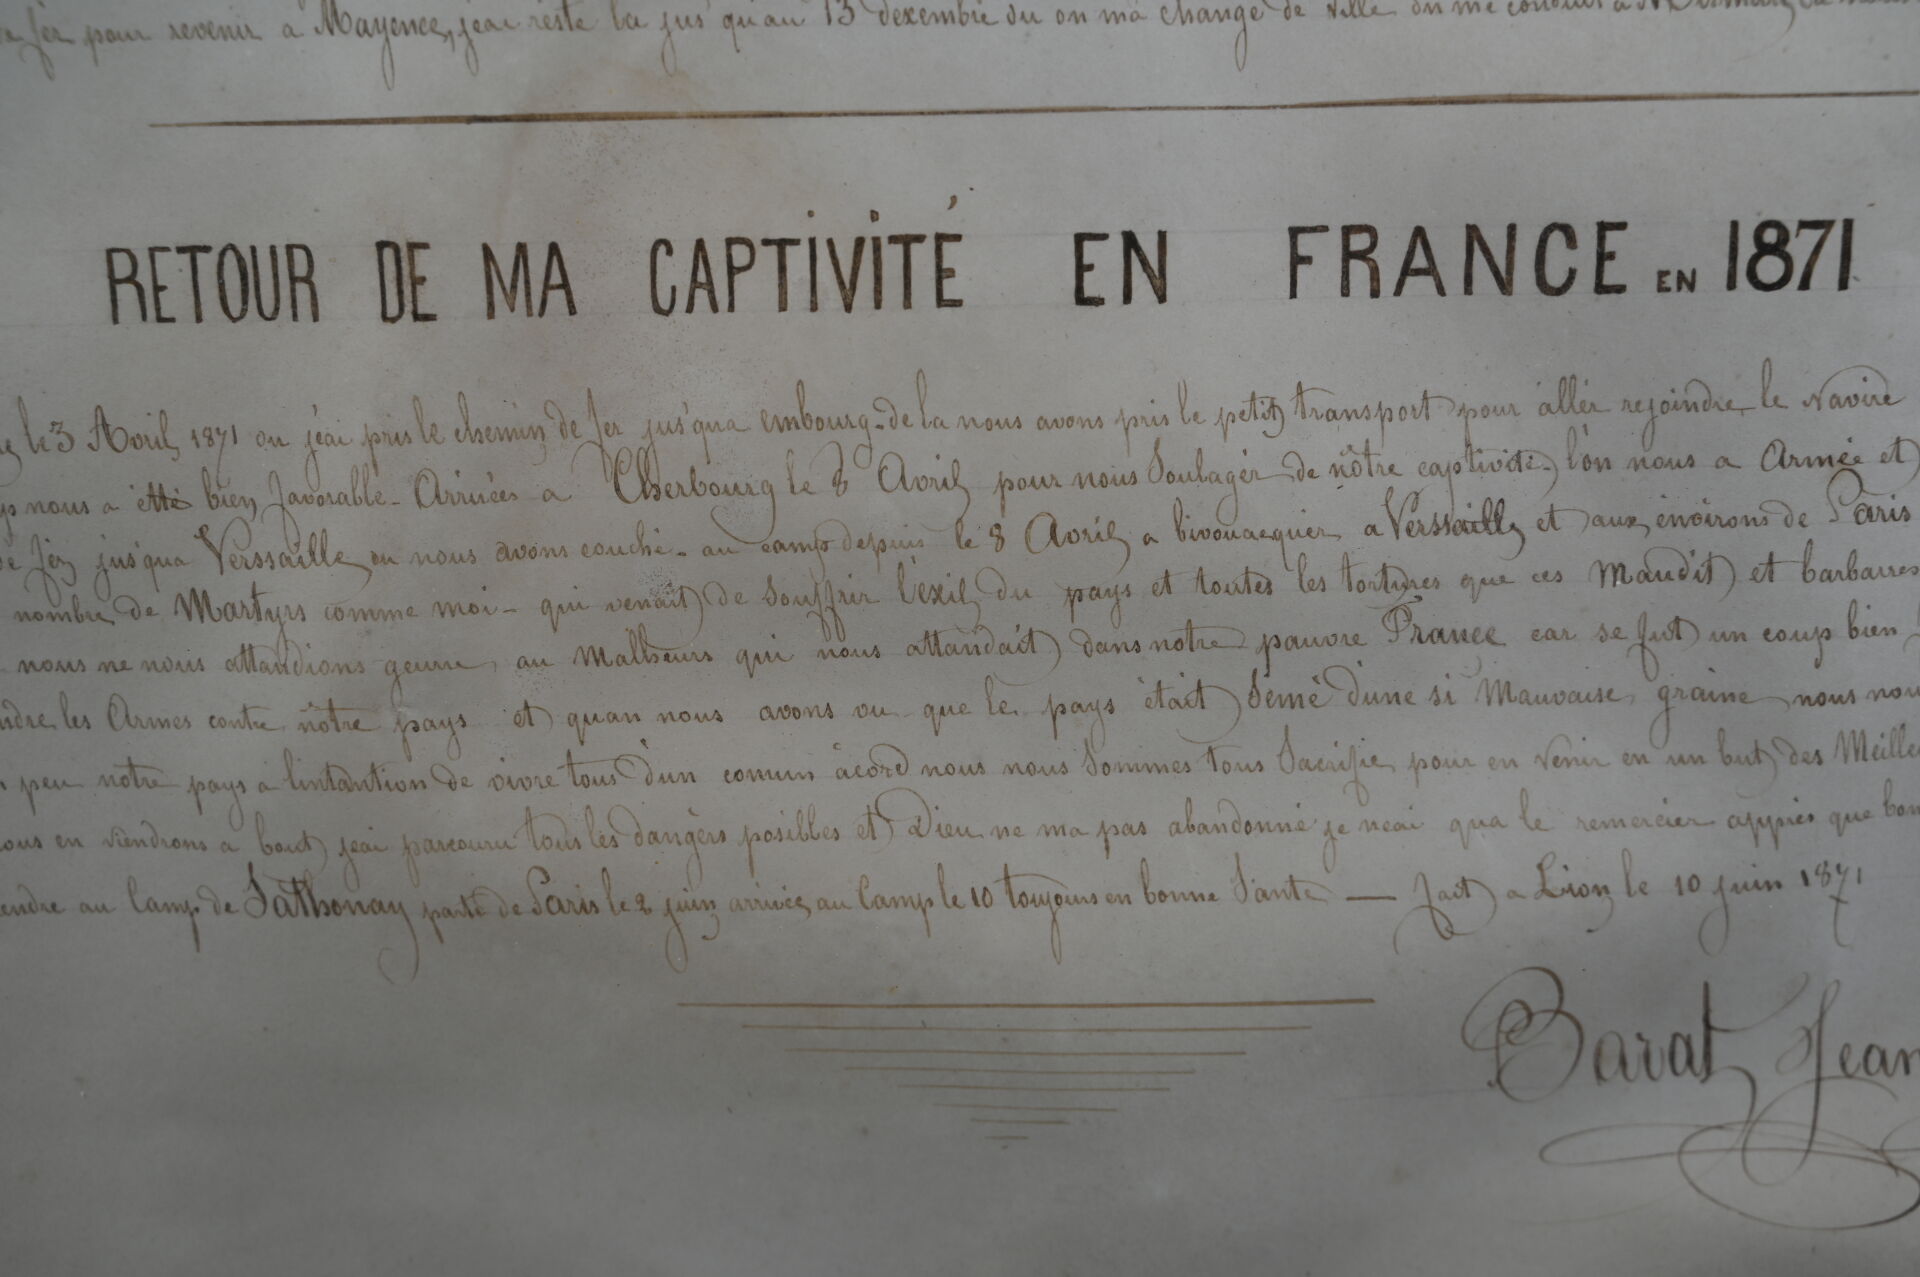 fer pour revenir a Mayence, jeai reste la jus qu'au 13 dexembre ou on ma change de ville on me conduit a
RETOUR DE MA CAPTIVITÉ EN FRANCE EN 1871
le 3 Avril 1871 ou jéai pris le chemin de fer jusqua embourg - de la nous avons pris le petit transport pour allér rejoindre le Navire
nous a étté bien favorable - Arrivées a Cherbourg le 8 Avril pour nous Soulagér de nôtre captivité - lon nous a Armée et
fer jusqua Verssaille ou nous avons couché - au camp depuis le 8 Avril a bivouacquier a Verssaille et aux environs de Paris
nombre de Martyrs comme moi - qui venait de Souffrir l'exil du pays et toutes les tortures que ces Maudit et barbares
nous ne nous attandions geurre au Malheurs qui nous attandait dans notre pauvre France car se fut un coup bien
les Armes contre nôtre pays et quan nous avons vu que le pays était Semé dune si Mauvaise graine nous nou
peu notre pays a lintantion de vivre tous dun comun acord nous nous Sommes tous Sacrifie pour en venir en un but des Meille
ous en viendrons a bout jeai parcouru tous les dangérs posibles et Dieu ne ma pas abandonné je neai qua le remercier apprés que bon
endre au Camp de Sathonay parti de Paris le 2 juin arrivée au Camp le 10 toujours en bonne Sante — fait a Lion le 10 juin 1871
Barat Jean